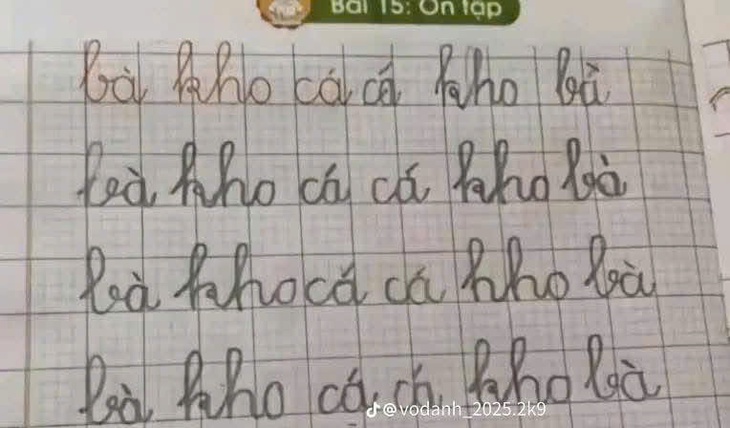 Bài 15: Ôn tập
bà kho cá cá kho bà
bà kho cá cá kho bà
bà kho cá cá kho bà
bà kho cá cá kho bà
@vodanh_2025.2k9